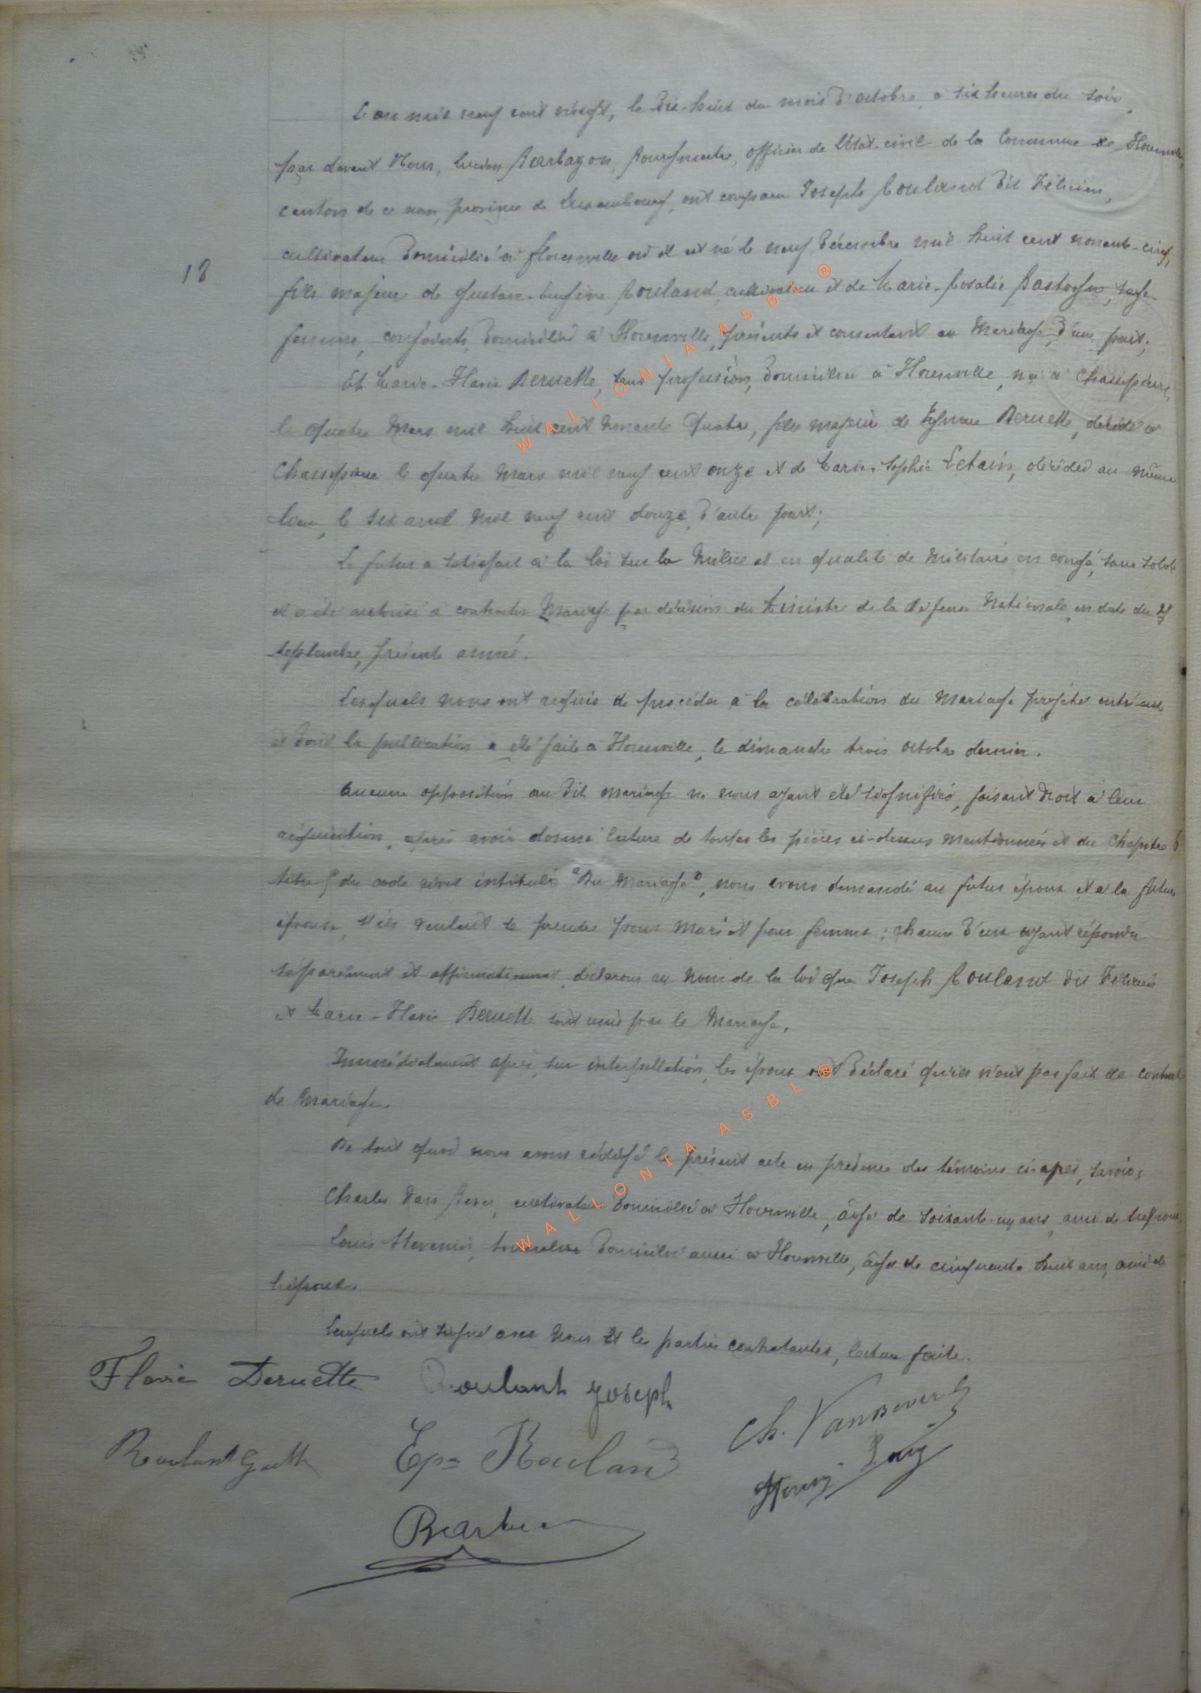 L'an mil neuf cent vingt, le dix-huit du mois d'octobre, à six heures du soir,
par devant Nous, Lucien Barbazon, Bourgmestre, officier de l'état-civil de la Commune de Florenville,
canton de ce nom, province de Luxembourg, ont comparu Joseph Rouland dit Félicien,
cultivateur domicilié à Florenville où il est né le neuf décembre mil huit cent nonante-cinq,
18
fils majeur de Gustave, Rouland, cultivateur et de Marie-Rosalie Bastogne,
femme, conjoints, domiciliés à Florenville, présents et consentant au Mariage, d'une part;
Et Marie-Flavie Deruette, sans profession, domiciliée à Florenville, née à Chassepierre,
le quatre Mars mil huit cent nonante quatre, fille majeure de Deruette, décédé à
Chassepierre le quatre Mars mil neuf cent onze et de Marie-Sophie Letain, décédée au même
lieu, le six avril mil neuf cent douze, d'autre part;
Le futur a satisfait à la loi sur la Milice et en qualité de Militaire en congé, sans solde
il a été autorisé à contracter Mariage par décision du Ministre de la Défense Nationale, en date du 27
septembre, présente année.
Lesquels nous ont requis de procéder à la célébration du Mariage projeté entr'eux
et dont la publication a été faite à Florenville, le dimanche trois octobre dernier.
Aucune opposition au dit mariage ne nous ayant été signifiée, faisant droit à leur
réquisition, après avoir donné lecture de toutes les pièces ci-dessus mentionnées et du Chapitre 6
titre 5 du code civil intitulé "Du Mariage", nous avons demandé au futur époux et à la future
épouse, s'ils veulent se prendre pour Mari et pour femme; chacun d'eux ayant répondu
séparément et affirmativement, déclarons au Nom de la loi que Joseph Rouland dit Félicien
et Marie-Flavie Deruette sont unis par le Mariage.
Immédiatement après, sur interpellation, les époux ont déclaré qu'ils n'ont pas fait de contrat
de Mariage.
De tout quoi nous avons rédigé le présent acte en présence des témoins ci-après, savoir:
Charles Van Bever, cultivateur domicilié à Florenville, âgé de soixante-un ans, ami de l'époux,
Louis domicilié aussi à Florenville, âgé de cinquante huit ans, ami de
l'époux.
Lesquels ont signé avec Nous et les parties contractantes, lecture faite.
Flavie Deruette Roulant Joseph
Ch. Vanbever
Roulant Eps Rouland
WALLONIA ASBL ®
WALLONIA ASBL ®